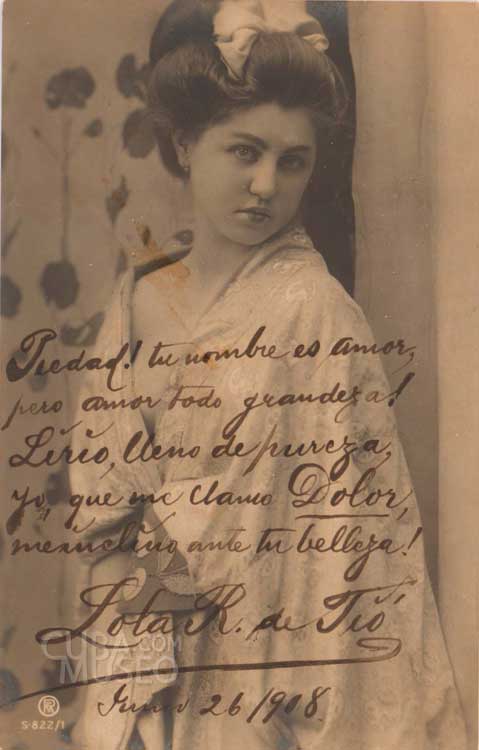 Piedad! tu nombre es amor,
pero amor todo grandeza!
Lirio, lleno de pureza,
yo, que me llamo Dolor,
me inclino ante tu belleza!
Lola R. de Tió
Junio 26/908.
CUBA.COM
MUSEO
RPH
S-822/1